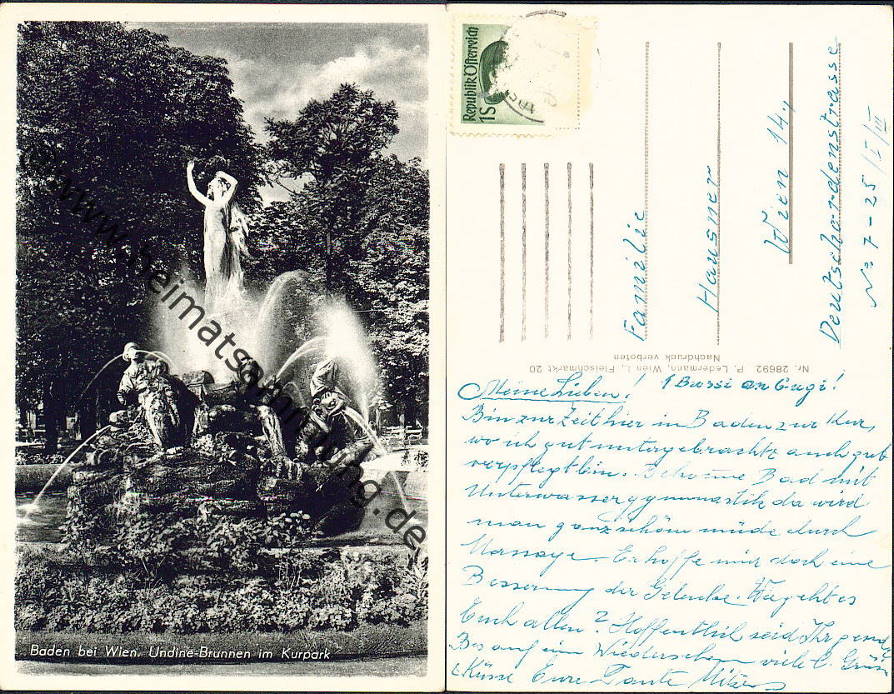 Baden bei Wien. Undine-Brunnen im Kurpark
www.heimatsammlung.de
Republik Österreich
1S
Familie
Hausner
Wien 14.,
Deutschordenstrasse
No 7-25/I/III
Nr. 28692 P. Ledermann, Wien I., Fleischmarkt 20
Nachdruck verboten
1 Bussi an Gugi!
Meine Lieben!
Bin zur Zeit hier in Baden zur Kur,
wo ich gut untergebracht auch gut
verpflegt bin. Bad mit
Unterwassergymnastik da wird
man ganz schön müde durch
Massage. Erhoffe mir doch eine
Besserung der Gelenke. Wie geht es
Euch allen? Hoffentlich seid Ihr gesund
Bis auf ein Wiedersehen viele l. Grüße
& Küsse Eure Tante